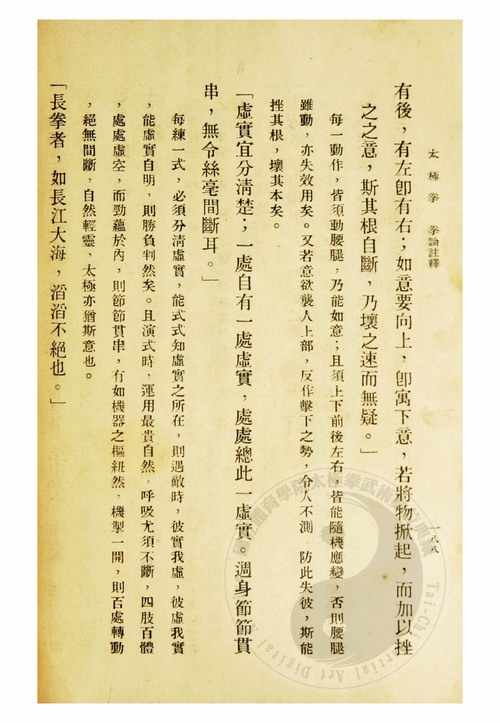 太極拳　拳論註釋
一八八
有後，有左卽有右；如意要向上，卽寓下意，若將物掀起，而加以挫
之之意，斯其根自斷，乃壞之速而無疑。」
每一動作，皆須動腰腿，乃能如意；且須上下前後左右，皆能隨機應變，否則腰腿
雖動，亦失效用矣。又若意欲襲人上部，反作擊下之勢，令人不測，防此失彼，斯能
挫其根，壞其本矣。
「虛實宜分清楚；一處自有一處虛實，處處總此一虛實。週身節節貫
串，無令絲毫間斷耳。」
每練一式，必須分清虛實，能式式知虛實之所在，則遇敵時，彼實我虛，彼虛我實
，能虛實自明，則勝負判然矣。且演式時，運用最貴自然，呼吸尤須不斷，四肢百體
，處處虛空，而勁蘊於內，則節節貫串，有如機器之樞紐然，機掣一開，則百處轉動
，絕無間斷，自然輕靈，太極亦猶斯意也。
「長拳者，如長江大海，滔滔不絕也。」
Tai-Chi
Martial Art Digital